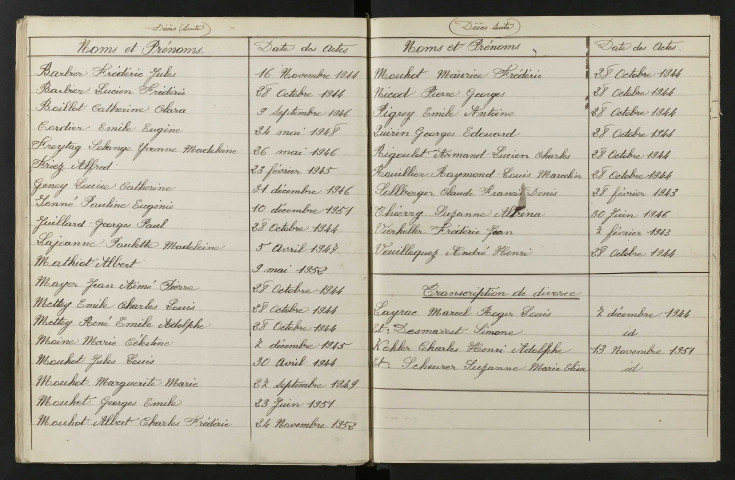 Décès (suite)
Noms et Prénoms. Date des Actes
Barbier Frédéric Jules 16 Novembre 1944
Barbier Lucien Frédéric 28 Octobre 1944
Boillot Catherine Clara 9 Septembre 1946
Cordier Emile Eugène 24 mai 1948
Freytag Solange Yvonne Madeleine 26 mai 1946
Friez Alfred 23 février 1945
Geney Louise Catherine 31 décembre 1946
Jenné Pauline Eugénie 10 décembre 1951
Juillard Georges Paul 28 Octobre 1944
Lajeanne Paulette Madeleine 5 Avril 1947
Mathiot Albert 9 mai 1952
Mayer Jean Aimé Pierre 28 Octobre 1944
Mettey Emile Charles Louis 28 Octobre 1944
Mettey René Emile Adolphe 28 Octobre 1944
Moine Marie Célestine 7 décembre 1945
Mouhot Jules Louis 30 Avril 1944
Mouhot Marguerite Marie 27 Septembre 1949
Mouhot Georges Emile 23 Juin 1951
Mouhot Albert Charles Frédéric 24 Novembre 1952
Décès (suite)
Noms et Prénoms Date des Actes.
Mouhot Maurice Frédéric 28 Octobre 1944
Nicod Pierre Georges 28 Octobre 1944
Pigrey Emile Antoine 28 Octobre 1944
Quirin Georges Edouard 28 Octobre 1944
Rigoulot Armand Lucien Charles 28 Octobre 1944
Rouillier Raymond Louis Marcelin 28 Octobre 1944
Sallberger Claude Francis Denis 28 février 1943
Thierry Suzanne 30 Juin 1946
Frédéric Jean 2 février 1913
Vuillequez André Henri 28 Octobre 1944
Transcription de divorce
Cayrac Marcel Roger Louis 7 décembre 1944
Et: Desmarest Simone id
Kohler Charles Henri Adolphe 13 Novembre 1951
Et: Scheurer Suzanne Marie Elisa id